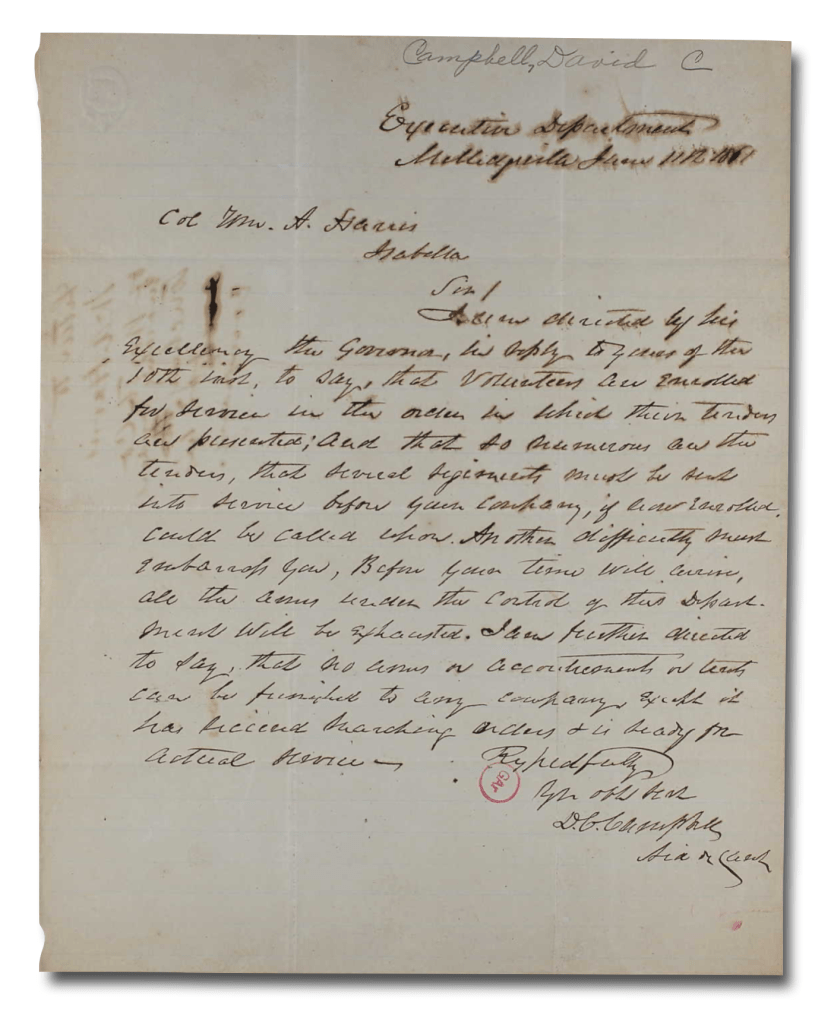 Campbell, David C
Executive Department
Milledgeville June 11th 1861
Col Wm. A. Harris
Isabella
Sir!
I am directed by his
Excellency the Governor, in reply to yours of the
10th inst, to say, that Volunteers are Enrolled
for Service in the order in which their tenders
are presented; And that so numerous are the
tenders, that several regiments must be sent
into service before your Company, if now Enrolled,
could be called upon. Another difficulty must
Embarrass you, Before your time will arrive,
all the arms under the Control of this Depart-
ment Will be Exhausted. I am further directed
to say, that no arms or accoutrements or tents
can be furnished to any company, Except it
has received marching orders & is ready for
actual service —
Respectfully
Yr obt Servt
D. C. Campbell
Aid de Camp
GAr